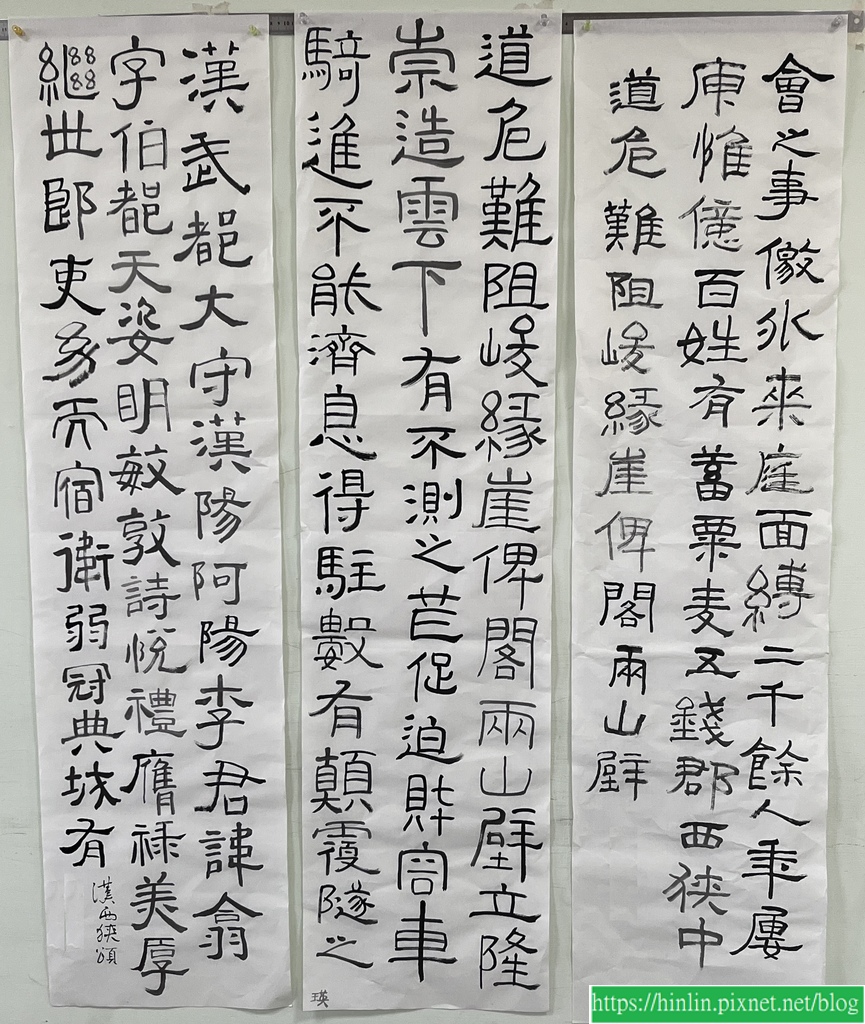 會之事儌外來庭面縛二千餘人年屢
庾惟億百姓有蓄粟麦五錢郡西狹中
道危難阻峻緣崖俾閣兩山壁
道危難阻峻緣崖俾閣兩山壁立隆
崇造雲下有不測之芒促迫財容車
騎進不能濟息得駐數有顛覆隧之
瑛
漢武都大守漢陽阿陽李君諱翕
字伯都天姿明敏敦詩悅禮膺祿美厚
繼世郎吏幼而宿衛弱冠典城有
漢西狹頌
https://hinlin.pixnet.net/blog